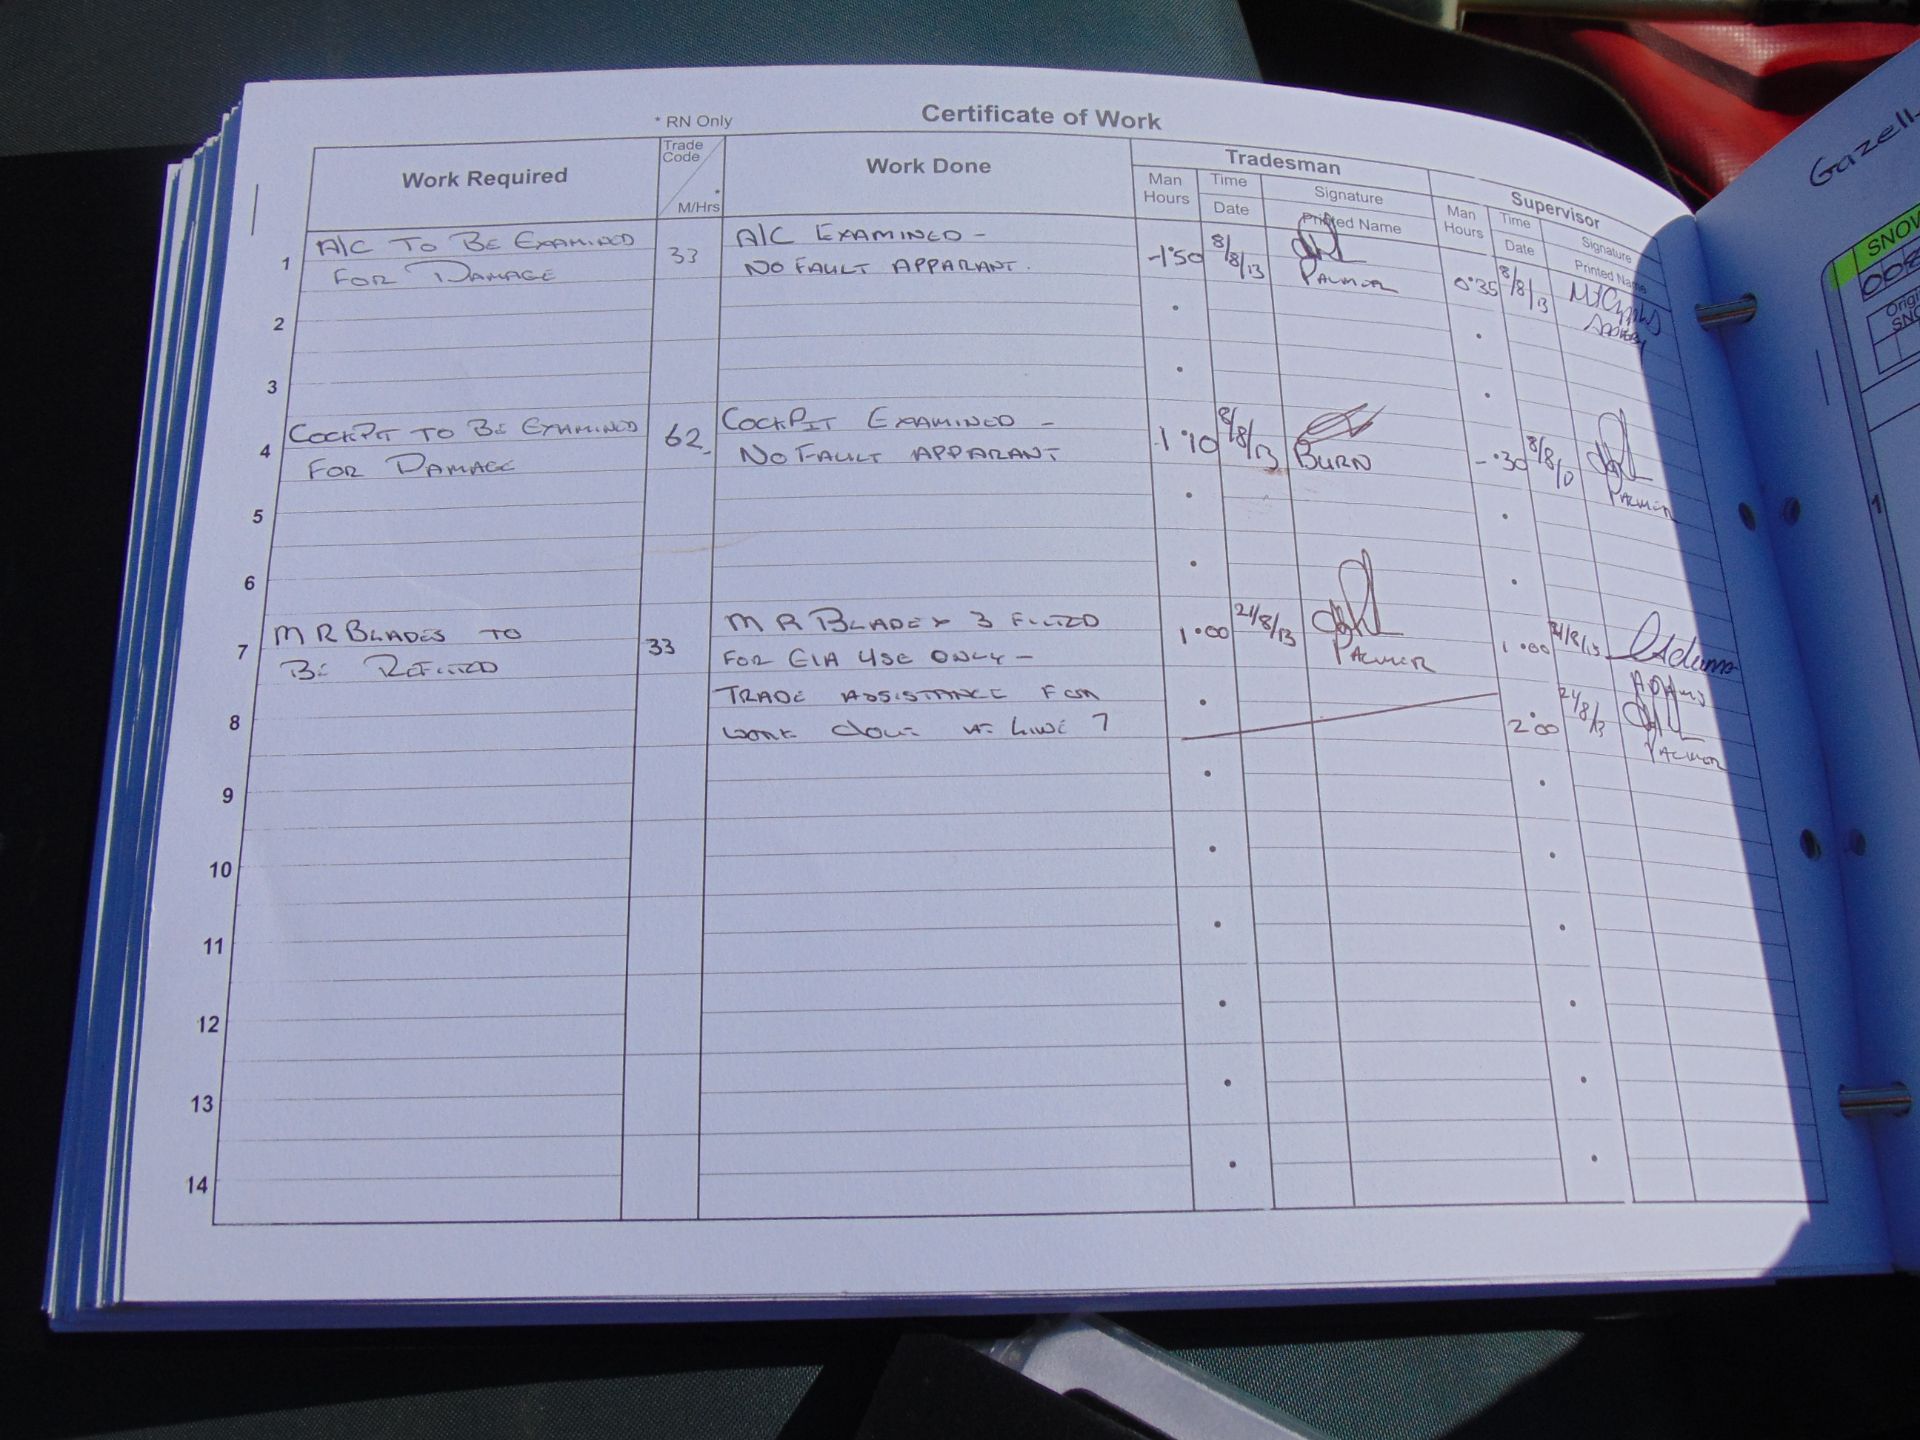 * RN Only
Certificate of Work
Work Required
Trade
Code
*
M/Hrs
Work Done
Tradesman
Man
Hours
Time
Date
Signature
Printed Name
Supervisor
Man
Hours
Time
Date
Signature
Printed Name
1
A/C TO BE EXAMINED
FOR DAMAGE
33
A/C EXAMINED -
NO FAULT APPARANT.
1.50
8/8/13
PALMER
0.35
8/8/13
2
3
4
COCKPIT TO BE EXAMINED
FOR DAMAGE
62
COCKPIT EXAMINED -
NO FAULT APPARANT
1.10
8/8/13
BURN
- .30
PALMER
5
6
7
M R BLADES TO
BE REFITTED
33
M R BLADE X 3 FITTED
FOR GIA USE ONLY -
1.00
21/8/13
PALMER
1.00
21/8/13
Adams
ADAMS
8
TRADE ASSISTANCE FOR
WORK DONE AT LINE 7
2.00
21/8/13
PALMER
9
10
11
12
13
14
Gazell
SNOW
008
Origi
SNO
1